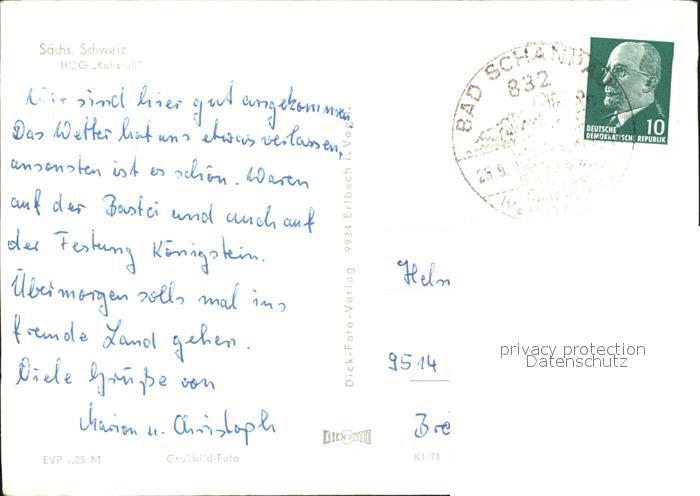 Sächs. Schweiz
HOG „Kuhstall"
Wir sind hier gut angekommen
Das Wetter hat uns etwas verlassen,
ansonsten ist es schön. Waren
auf der Bastei und auch auf
der Festung Königstein.
Übermorgen solls mal ins
fremde Land gehen.
Viele Grüße von
Marion u. Christoph
EVP -,25 M
Großbild-Foto
Dick-Foto-Verlag 9934 Erlbach i. Vogtl.
BAD SCHANDAU
832
DEUTSCHE
DEMOKRATISCHE REPUBLIK
10
9514
K1/71
privacy protection
Datenschutz